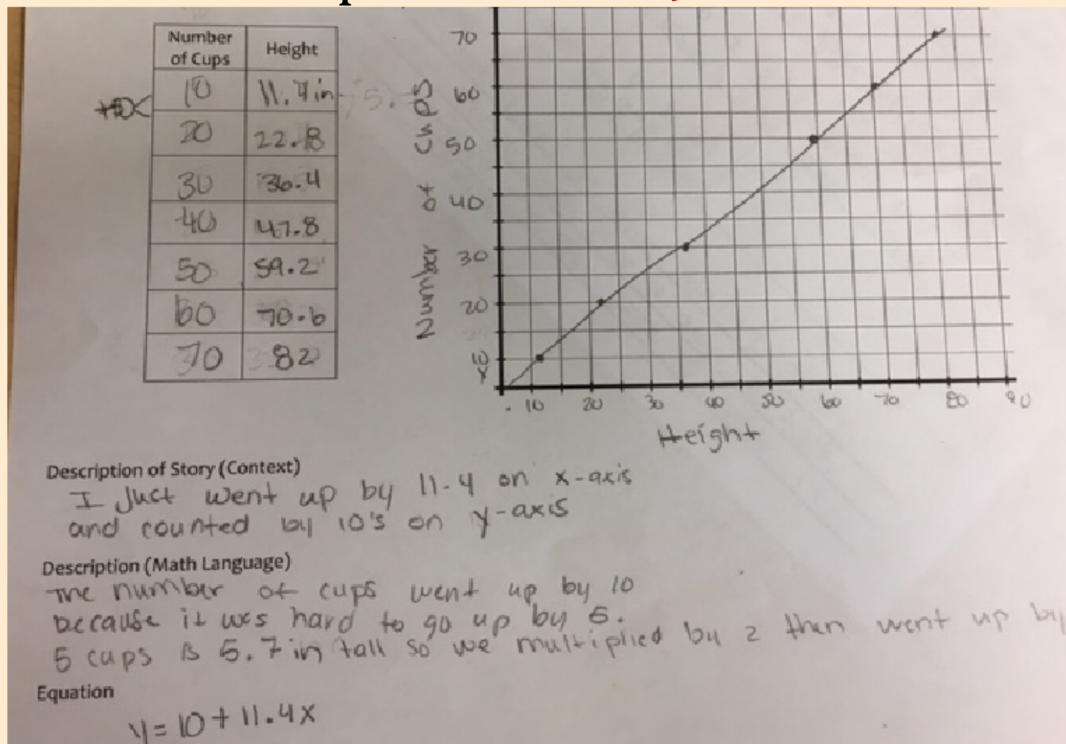 Number of Cups
Height
10
11.4 in
20
22.8
30
36.4
40
47.8
50
59.2
60
70.6
70
82
Number of Cups
70
60
50
40
30
20
10
10
20
30
40
50
60
70
80
90
Height
Description of Story (Context)
I Just went up by 11.4 on x-axis
and counted by 10's on y-axis
Description (Math Language)
The number of cups went up by 10
because it was hard to go up by 5.
5 cups is 5.7 in tall so we multiplied by 2 then went up by
Equation
y = 10 + 11.4x